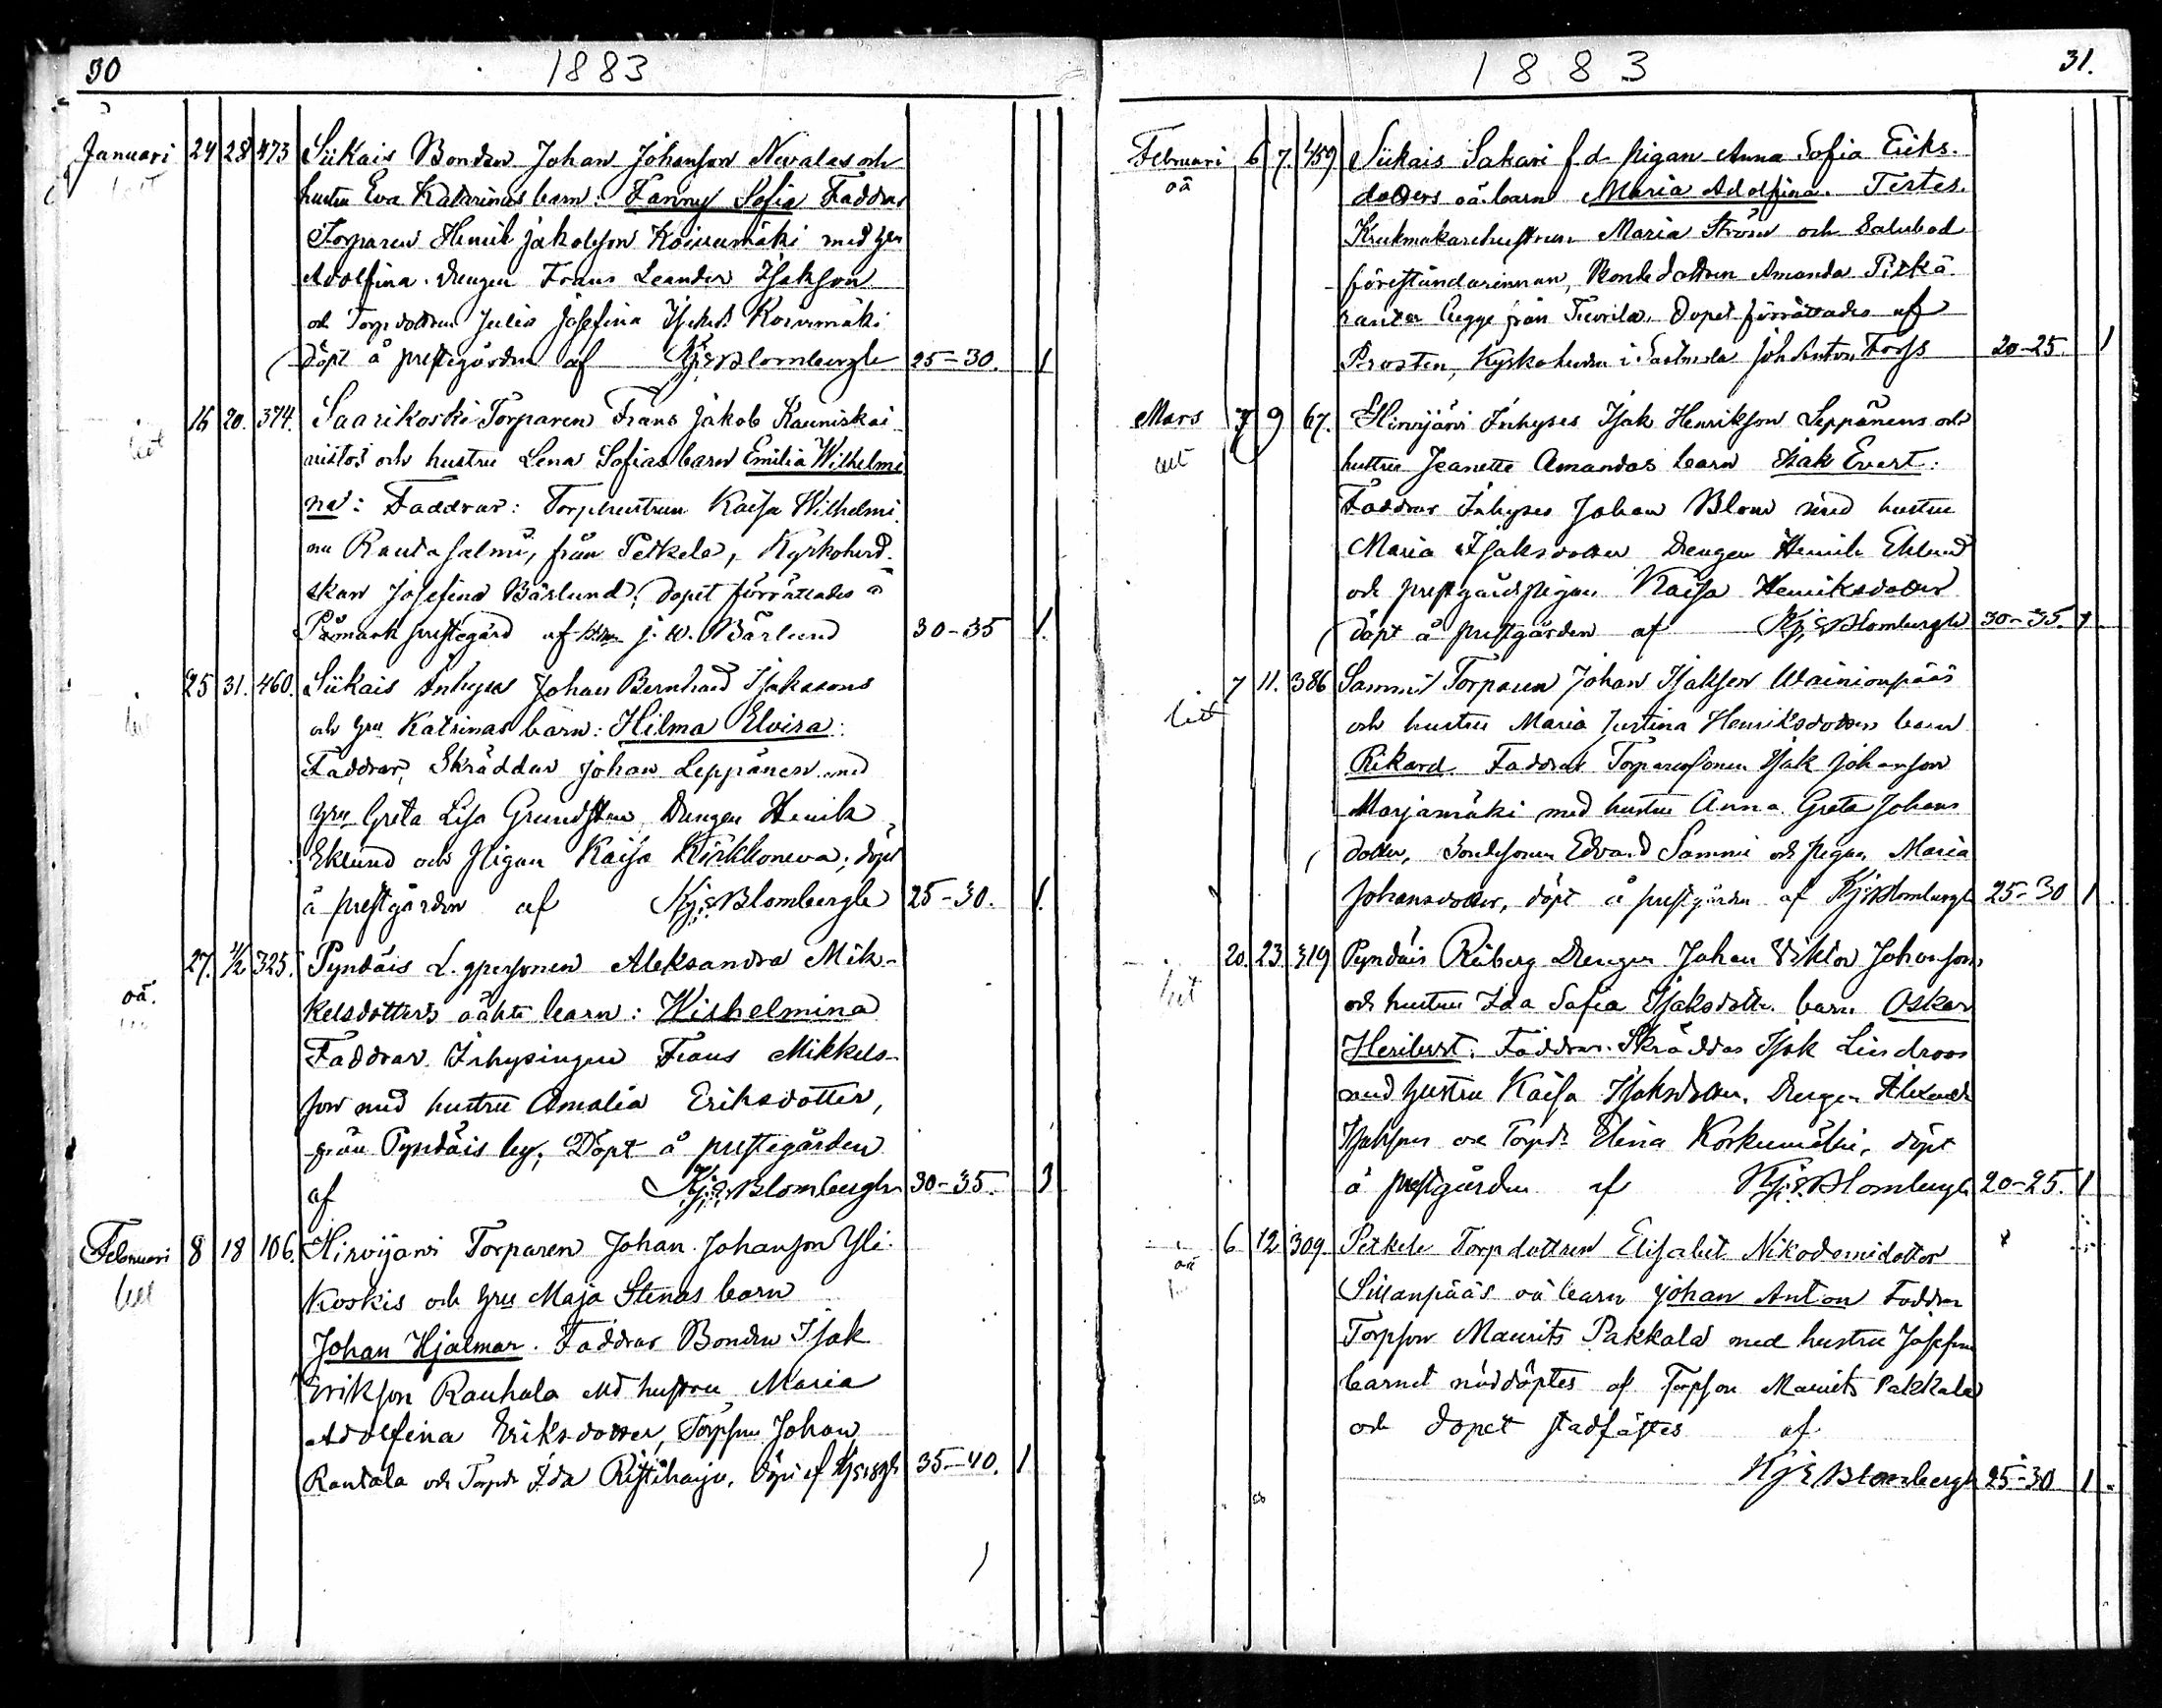 30
1883
Januari 24 28 473 Siikais Bonden Johan Johanson Nevalas och
hustru Eva Katarinas barn: Fanny Sofia Faddrar
Torparen Henrik Jakobson Koivumäki med hru
Adolfina. Drengen Frans Leander Isakson
och Torpdottren Julia Josefina Koivumäki
döpt å prestegården af KjEBlombergh 25-30. 1
16 20. 374. Saarikoski Torparen Frans Jakob Kauniskai
ristos och hustru Lena Sofias barn Emilia Wilhelmi
na: Faddrar: Torphustrun Kaisa Wilhelmi
na Rautasalmi, från Petkele, Kyrkoherd-
skan Josefina Bärlund; Dopet förrättades å
Påmark prestegård af J. W. Bärlund 30-35 1.
25 31. 460. Siikais Inhyses Johan Bernhard Isaksons
och hru Katrinas barn: Hilma Elvira:
Faddrar, Skräddar Johan Leppänen med
hru Greta Lisa Grundsten, Drengen Henrik
Eklund och pigan Kaisa; döpt
å prestgården af KjEBlombergh 25-30. 1.
27. 11/2 325. Pyndäis L. gpersonen Aleksandra Mik-
oä. kelsdotters oäkta barn: Wilhelmina
Faddrar Inhysingen Frans Mikkels-
son med hustru Amalia Eriksdotter,
från Pyndäis by; Döpt å prestegården
af KjEBlombergh 30-35. 3
Februari 8 18 106. Hirvijärvi Torparen Johan Johanson Yli-
Koskis och hru Maja Stenas barn
Johan Hjalmar. Faddrar Bonden Isak
Erikson Rauhala med hustru Maria
Adolfina Eriksdotter, Torpson Johan
Rantala och Torpdr Ida Ristiharju. Döpt af 35-40. 1
1883
31.
Februari 6 7. 459 Siikais Sakari f.d. pigan Anna Sofia Eriks-
oä dotters oä. barn Maria Adolfina. Testes.
Krukmakarehustrun Maria Ström och Salubod
föreståndarinnan, Bondedottren Amanda Pitkä-
ranta från Tuorila. Dopet förrättades af
Prosten, Kyrkoherden i Joh Anton Forss 20-25. 1
Mars 7 9 67. Hirvijärvi Inhyses Isak Henrikson Leppänens och
hustru Jeanette Amandas barn Isak Evert:
Faddrar Inhyses Johan Blom med hustru
Maria Isaksdotter Drengen Henrik Eklund
och prestgårdspigan Kaisa Henriksdotter
döpt å prestgården af KjEBlombergh 30-35. 1.
7 11. 386 Sammi Torparen Johan Isakson Wäinionpääs
och hustru Maria Justina Henriksdotters barn
Rikard. Faddrar Torparesonen Isak Johanson
Marjamäki med hustru Anna Greta Johans
dotter, Bondesonen Edvard Sammi och pigan Maria
Johansdotter, döpt å prestgården af KjEBlombergh 25-30 1
20. 23. 319 Pyndäis Riiberg Drengen Johan Viktor Johansons
och hustru Ida Sofia Isaksdotters barn Oskar
Heribert. Faddrar. Skräddar Isak Lindroos
med hustru Kaisa Isaksdotter, Drengen Alexander
Isakson och Torpdr Elina Korkumäki, döpt
å prestgården af KjEBlombergh 20-25. 1
6 12 309. Petkele Torpdottren Elisabet Nikodemidotter
oä Sillanpääs oä barn Johan Anton Faddrar
Torpson Maurits Pakkala med hustru Josefina
barnet nöddöptes af Torpson Maurits Pakkala
och dopet stadfästes af
KjEBlombergh 25-30 1.